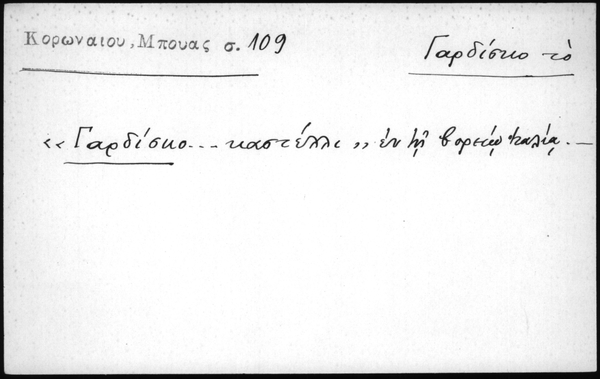 Κορωναιου, Μπουας σ. 109
Γαρδίσκο τὸ
«Γαρδίσκο... καστέλλι» ἐν τῇ βορείῳ Ἰταλίᾳ. —